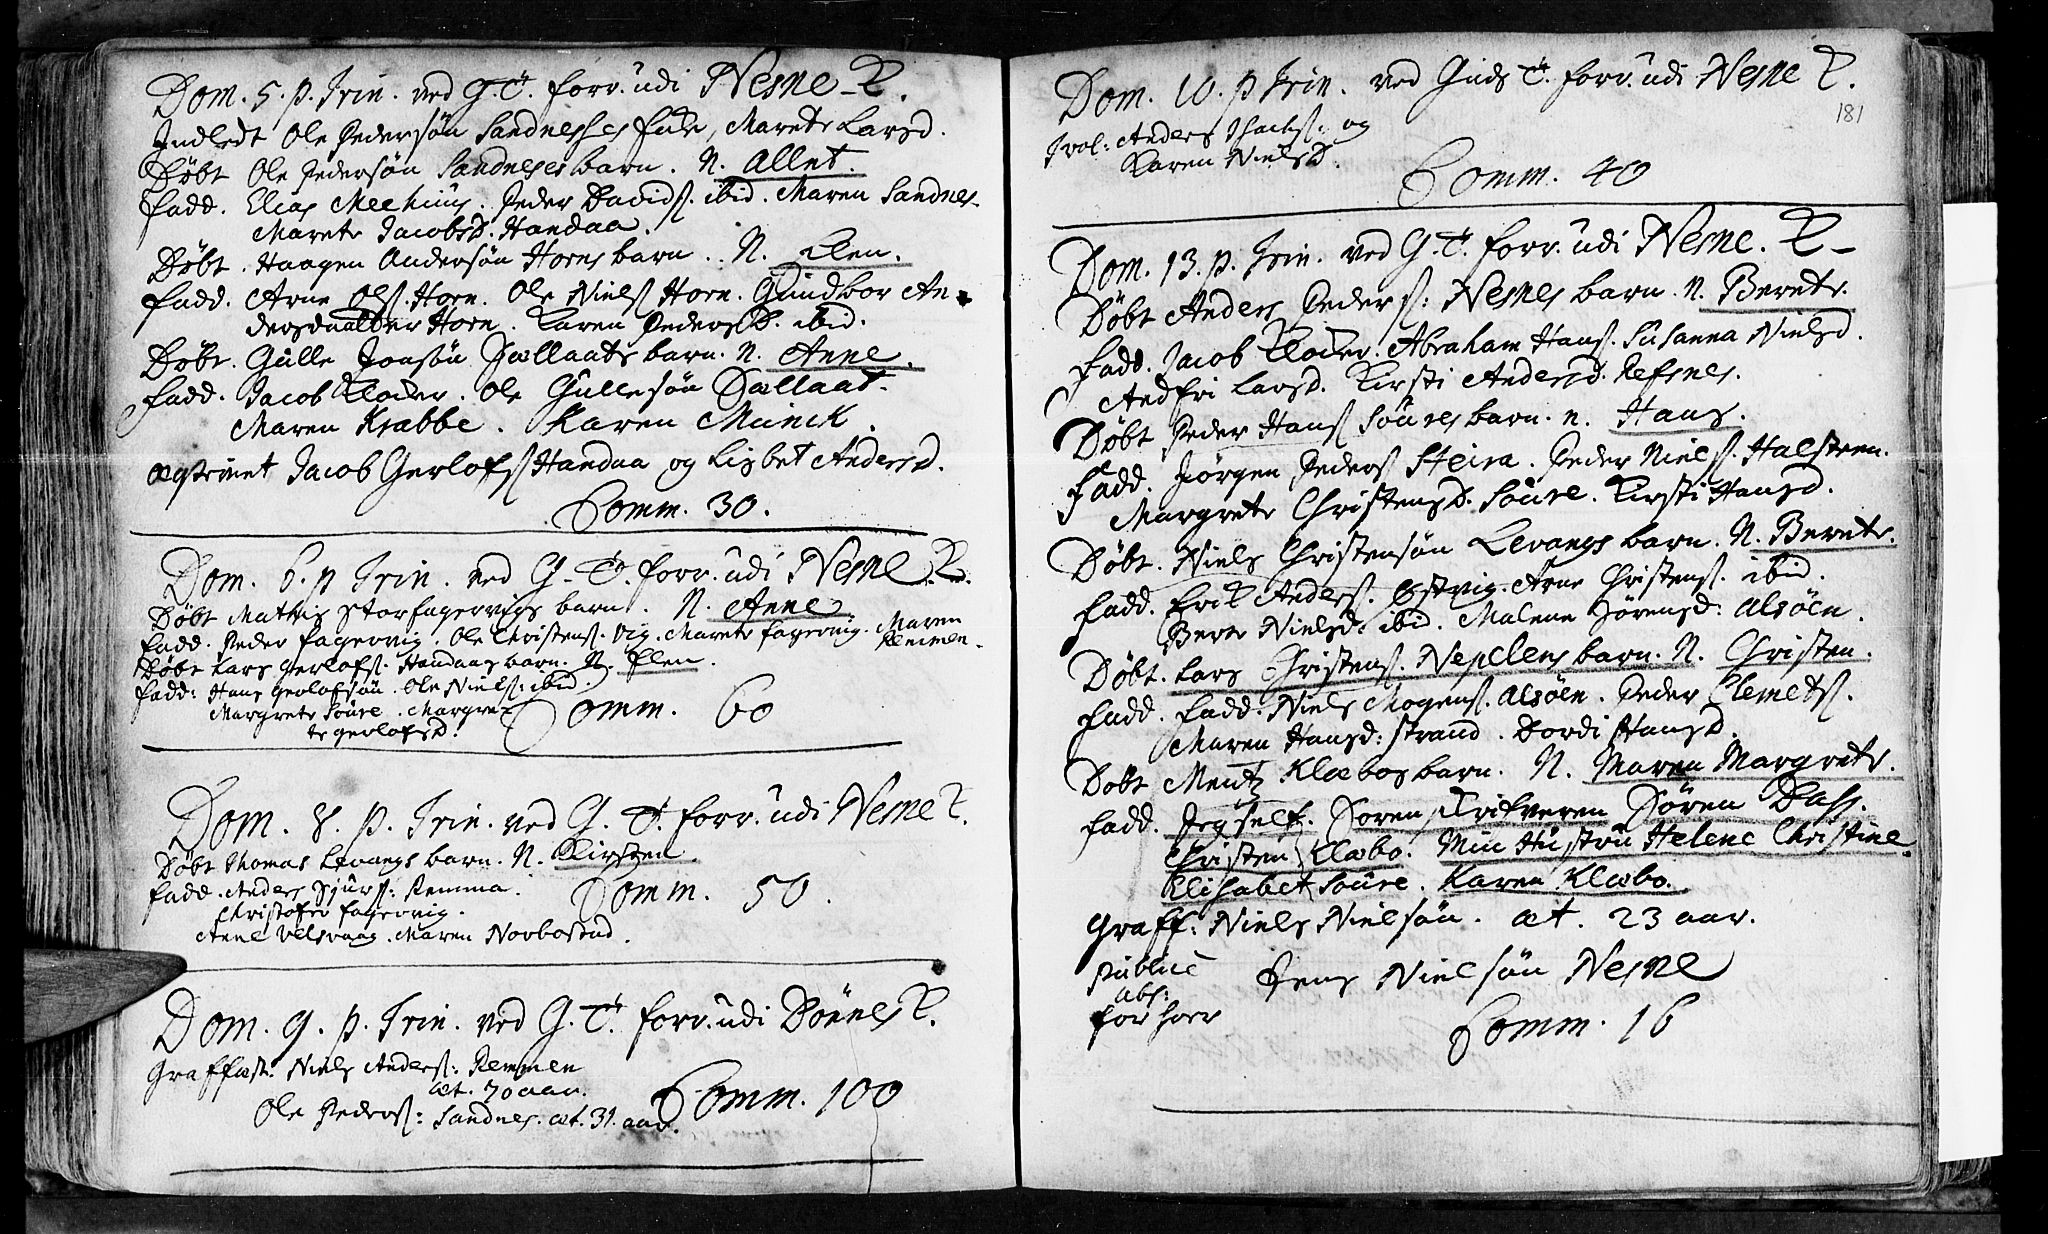 Dom. 5. p. Trin. ved G. T. forr. udi Nesne K.
Indledt Ole Pedersøn Marete Larsd.
Døbt Ole Pedersøn Sandneses barn. N. Allet.
fadd. Elias Mechius. Peder Davids. ibid. Maren Sandnes.
Marete Jacobsd. Handaa.
Døbt. Haagen Andersøn Horns barn. N. Elen.
fadd. Arne Ols. Horn. Ole Niels Horn. Gundbor An-
dersdaatter Horn. Karen Pedersd. ibid.
Døbt. Gulle Jonsøn barn. N. Anne.
fadd. Jacob Kloder. Ole Gullesøn
Maren Krabbe. Karen Munck.
Jacob Gerlofs Handaa og Lisbet Andersd.
Comm. 30.
Dom. 6. p Trin. ved G. T. forr. udi Nesne K.
Døbt Mathis Storfagervigs barn. N. Anne
fadd. Peder fagervig. Ole Christens. Vig. Marete fagervig. Maren
Døbt Lars gerlofs. Handaas barn. N. Elen.
fadd: Hans Gerlofsøn. Ole Niels: ibid.
Margrete Soure. Margre-
te gerlofsd.
Comm. 60
Dom. 8. p. Trin. ved G. T. forr. udi Nesne K.
Døbt Thomas Levangs barn. N. Kirsten.
fadd. Anders Sjurs: Remma.
Comm. 50.
Christofer fagervig.
Anne Maren
Dom. 9. p. Trin. ved G. T. forr. udi Dønnes K.
Graffæst. Niels Anders: Remmen
æt. 70 aar.
Ole Peders: Sandnes. æt. 31. aar.
Comm. 100
Dom. 10. p Trin. ved Guds T. forr. udi Nesne K.
181
Trol: Anders Isachs: og
Karen Nielsd.
Comm. 40
Dom. 13. p. Trin. ved G. T. forr. udi Nesne. K.
Døbt Anders Peders: Nesnes barn. N. Berete.
fadd. Jacob Kloder. Abraham Hans. Susanna Nielsd.
Larsd. Kirsti Andersd. Refsnes.
Døbt Peder Hans Soures barn. n. Hans.
fadd. Jørgen Peders Steira. Peder Niels.
Margrete Christensd. Soure. Kirsti Hansd.
Døbt. Niels Christensøn Levangs barn. N. Berete.
fadd. Erik Anders. Østvig. Arne Christens. ibid.
Berte Nielsd. ibid. Malene Sørensd: Alsøen.
Døbt. Lars Christens. Nepelens barn. N. Christen.
fadd. fadd. Niels Mogens. Alsøen. Peder Clemets.
Maren Hansd: strand. Dordi Hansd.
Døbt Mentz Klæbos barn. N. Maren Margrete.
fadd. Jeg self. Soren Søren Dass.
Christen Klæbo. Min Hustru Helene Christine.
Elisabet Soure. Karen Klæbo.
Graff: Niels Nielsøn. æt. 23 aar.
publice
abs:
for hoer
Jens Nielsøn Nesne
Comm. 16